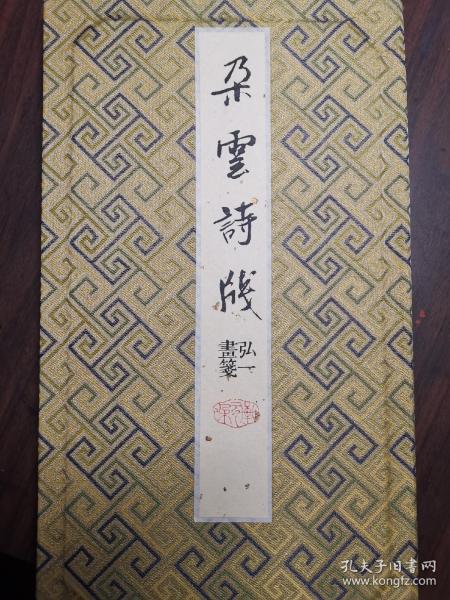 朵雲詩牋
弘一
畫箋
孔夫子旧书网
www.kongfz.com